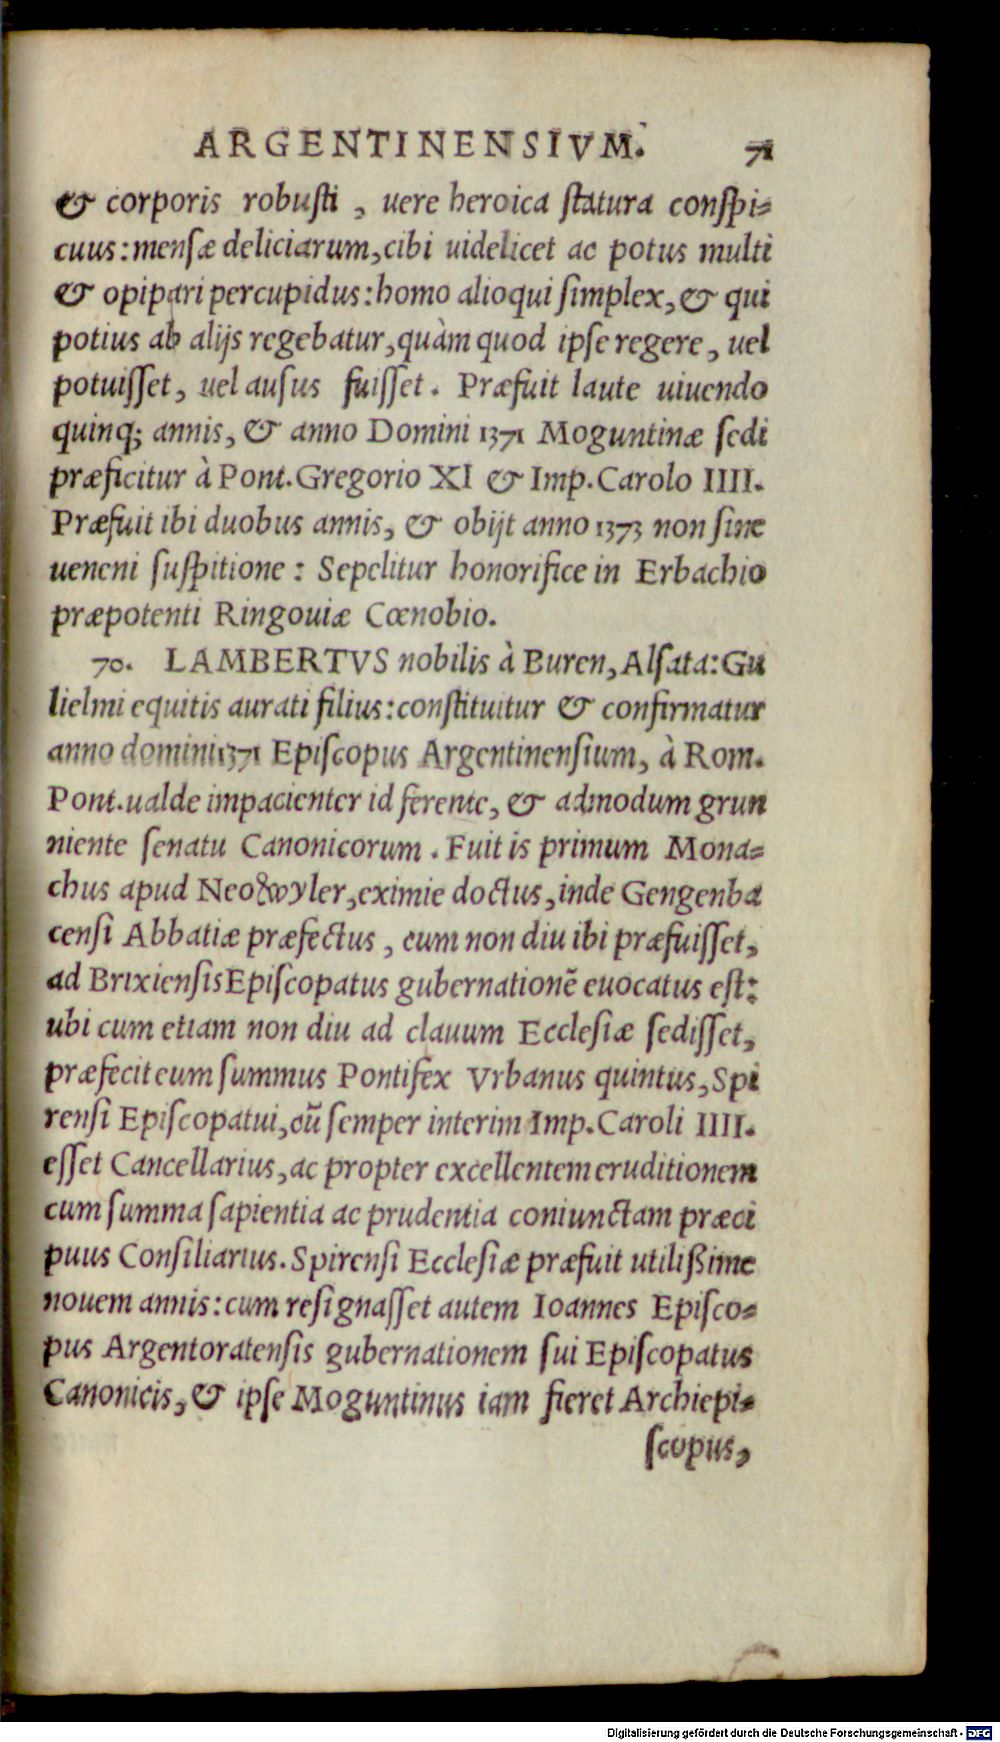 ARGENTINENSIVM. 71
& corporis robusti, uere heroica statura conspi=
cuus: mensæ deliciarum, cibi uidelicet ac potus multi
& opipari percupidus: homo alioqui simplex, & qui
potius ab alijs regebatur, quàm quod ipse regere, uel
potuisset, uel ausus fuisset. Præfuit laute uiuendo
quinq; annis, & anno Domini 1371 Moguntinæ sedi
præficitur à Pont. Gregorio XI & Imp. Carolo IIII.
Præfuit ibi duobus annis, & obijt anno 1373 non sine
ueneni suspitione: Sepelitur honorifice in Erbachio
præpotenti Ringouiæ Cœnobio.
70. LAMBERTVS nobilis à Buren, Alsata: Gu
lielmi equitis aurati filius: constituitur & confirmatur
anno domini 1371 Episcopus Argentinensium, à Rom.
Pont. ualde impacienter id ferente, & admodum grun
niente senatu Canonicorum. Fuit is primum Mona=
chus apud Neoꝛwyler, eximie doctus, inde Gengenba
censi Abbatiæ præfectus, cum non diu ibi præfuisset,
ad Brixiensis Episcopatus gubernationẽ euocatus est:
ubi cum etiam non diu ad clauum Ecclesiæ sedisset,
præfecit eum summus Pontifex Vrbanus quintus, Spi
rensi Episcopatui, cũ semper interim Imp. Caroli IIII.
esset Cancellarius, ac propter excellentem eruditionem
cum summa sapientia ac prudentia coniunctam præci
puus Consiliarius. Spirensi Ecclesiæ præfuit utilißime
nouem annis: cum resignasset autem Ioannes Episco=
pus Argentoratensis gubernationem sui Episcopatus
Canonicis, & ipse Moguntinus iam fieret Archiepi=
scopus,
Digitalisierung gefördert durch die Deutsche Forschungsgemeinschaft - DFG